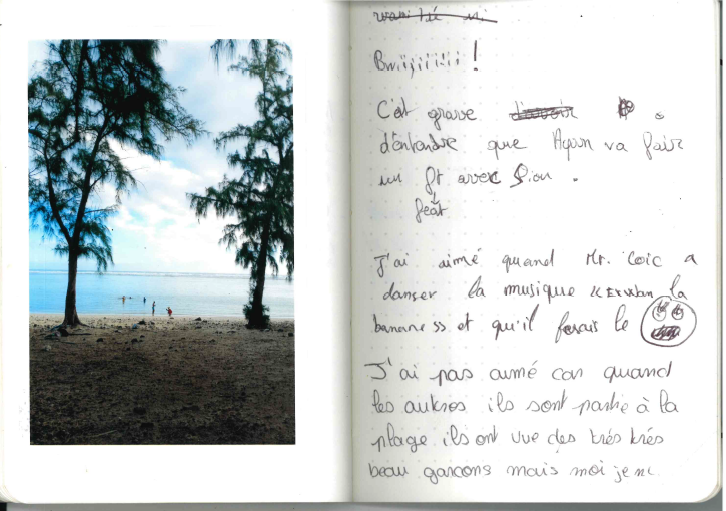 Bwiijiiiii !
C'est grave
d'entendre que Ayan va fair
un ft avec Lion.
feat
J'ai aimé quand Mr. Coic a
danser la musique "Erwan la
banane" et qu'il fesais le
J'ai pas aimé car quand
les autres ils sont partie à la
plage ils ont vue des trés trés
beau garcons mais moi je ne